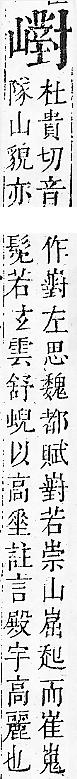 㠚
杜貴切音
隊山貌亦
作對左思魏都賦對若崇山崫起而崔嵬
髧若玄雲舒蜺以高垂註言殿宇高麗也